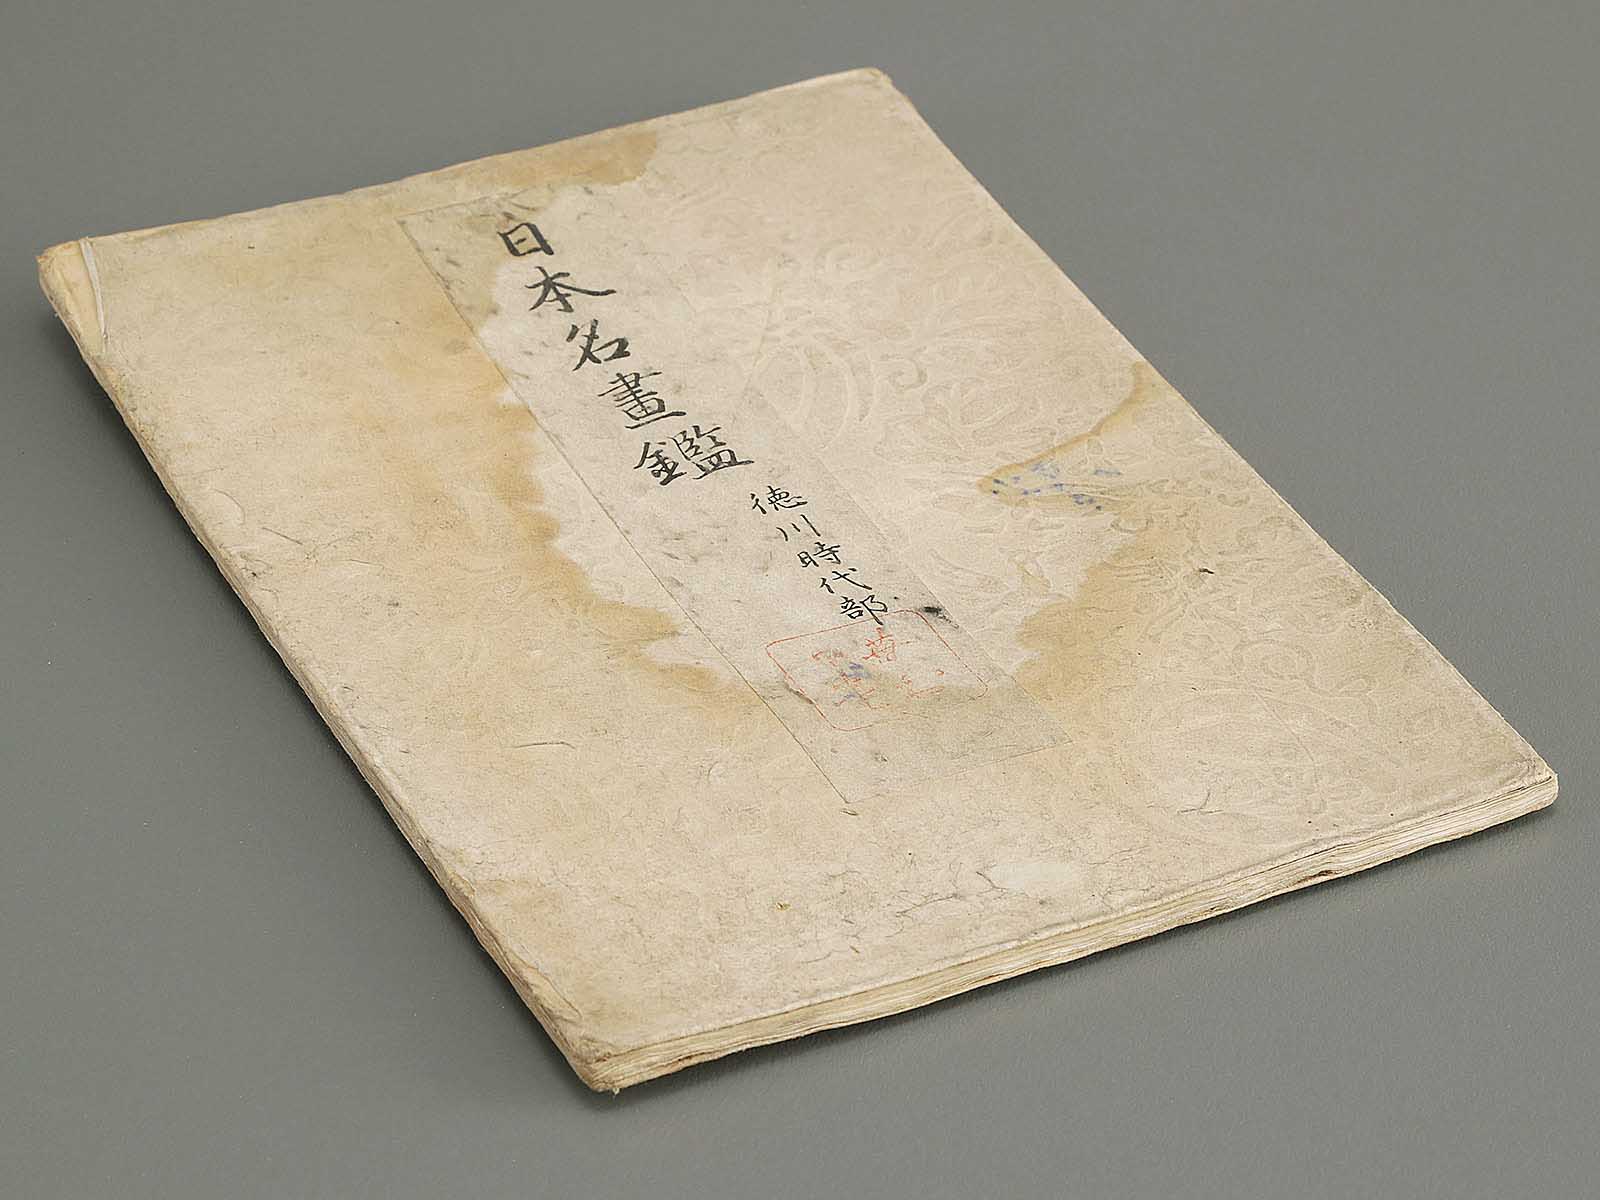 日本名畫鑑
徳川時代部